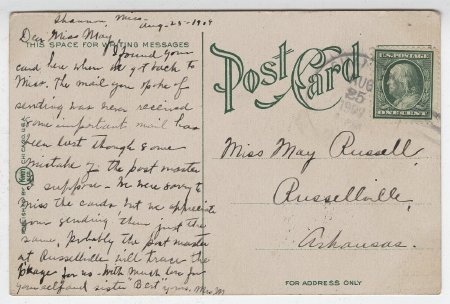 Shannon, Miss.
Aug-25-1909
Dear Miss May,
THIS SPACE FOR WRITING MESSAGES
I found your
card here when we got back to
Miss. The mail you spoke of
sending was never received
some important mail has
been lost though some
mistake of the post master
I suppose - We were sorry to
Miss the cards but we appreciate
your sending them just the
same. Probably the post master
at Russellville will trace the
package for us. With much love for
yourself and sister "Bert" yours, Mrs. M.
Post Card
U.S. POSTAGE
ONE CENT
AUG
25
Miss May Russell,
Russellville,
Arkansas.
FOR ADDRESS ONLY